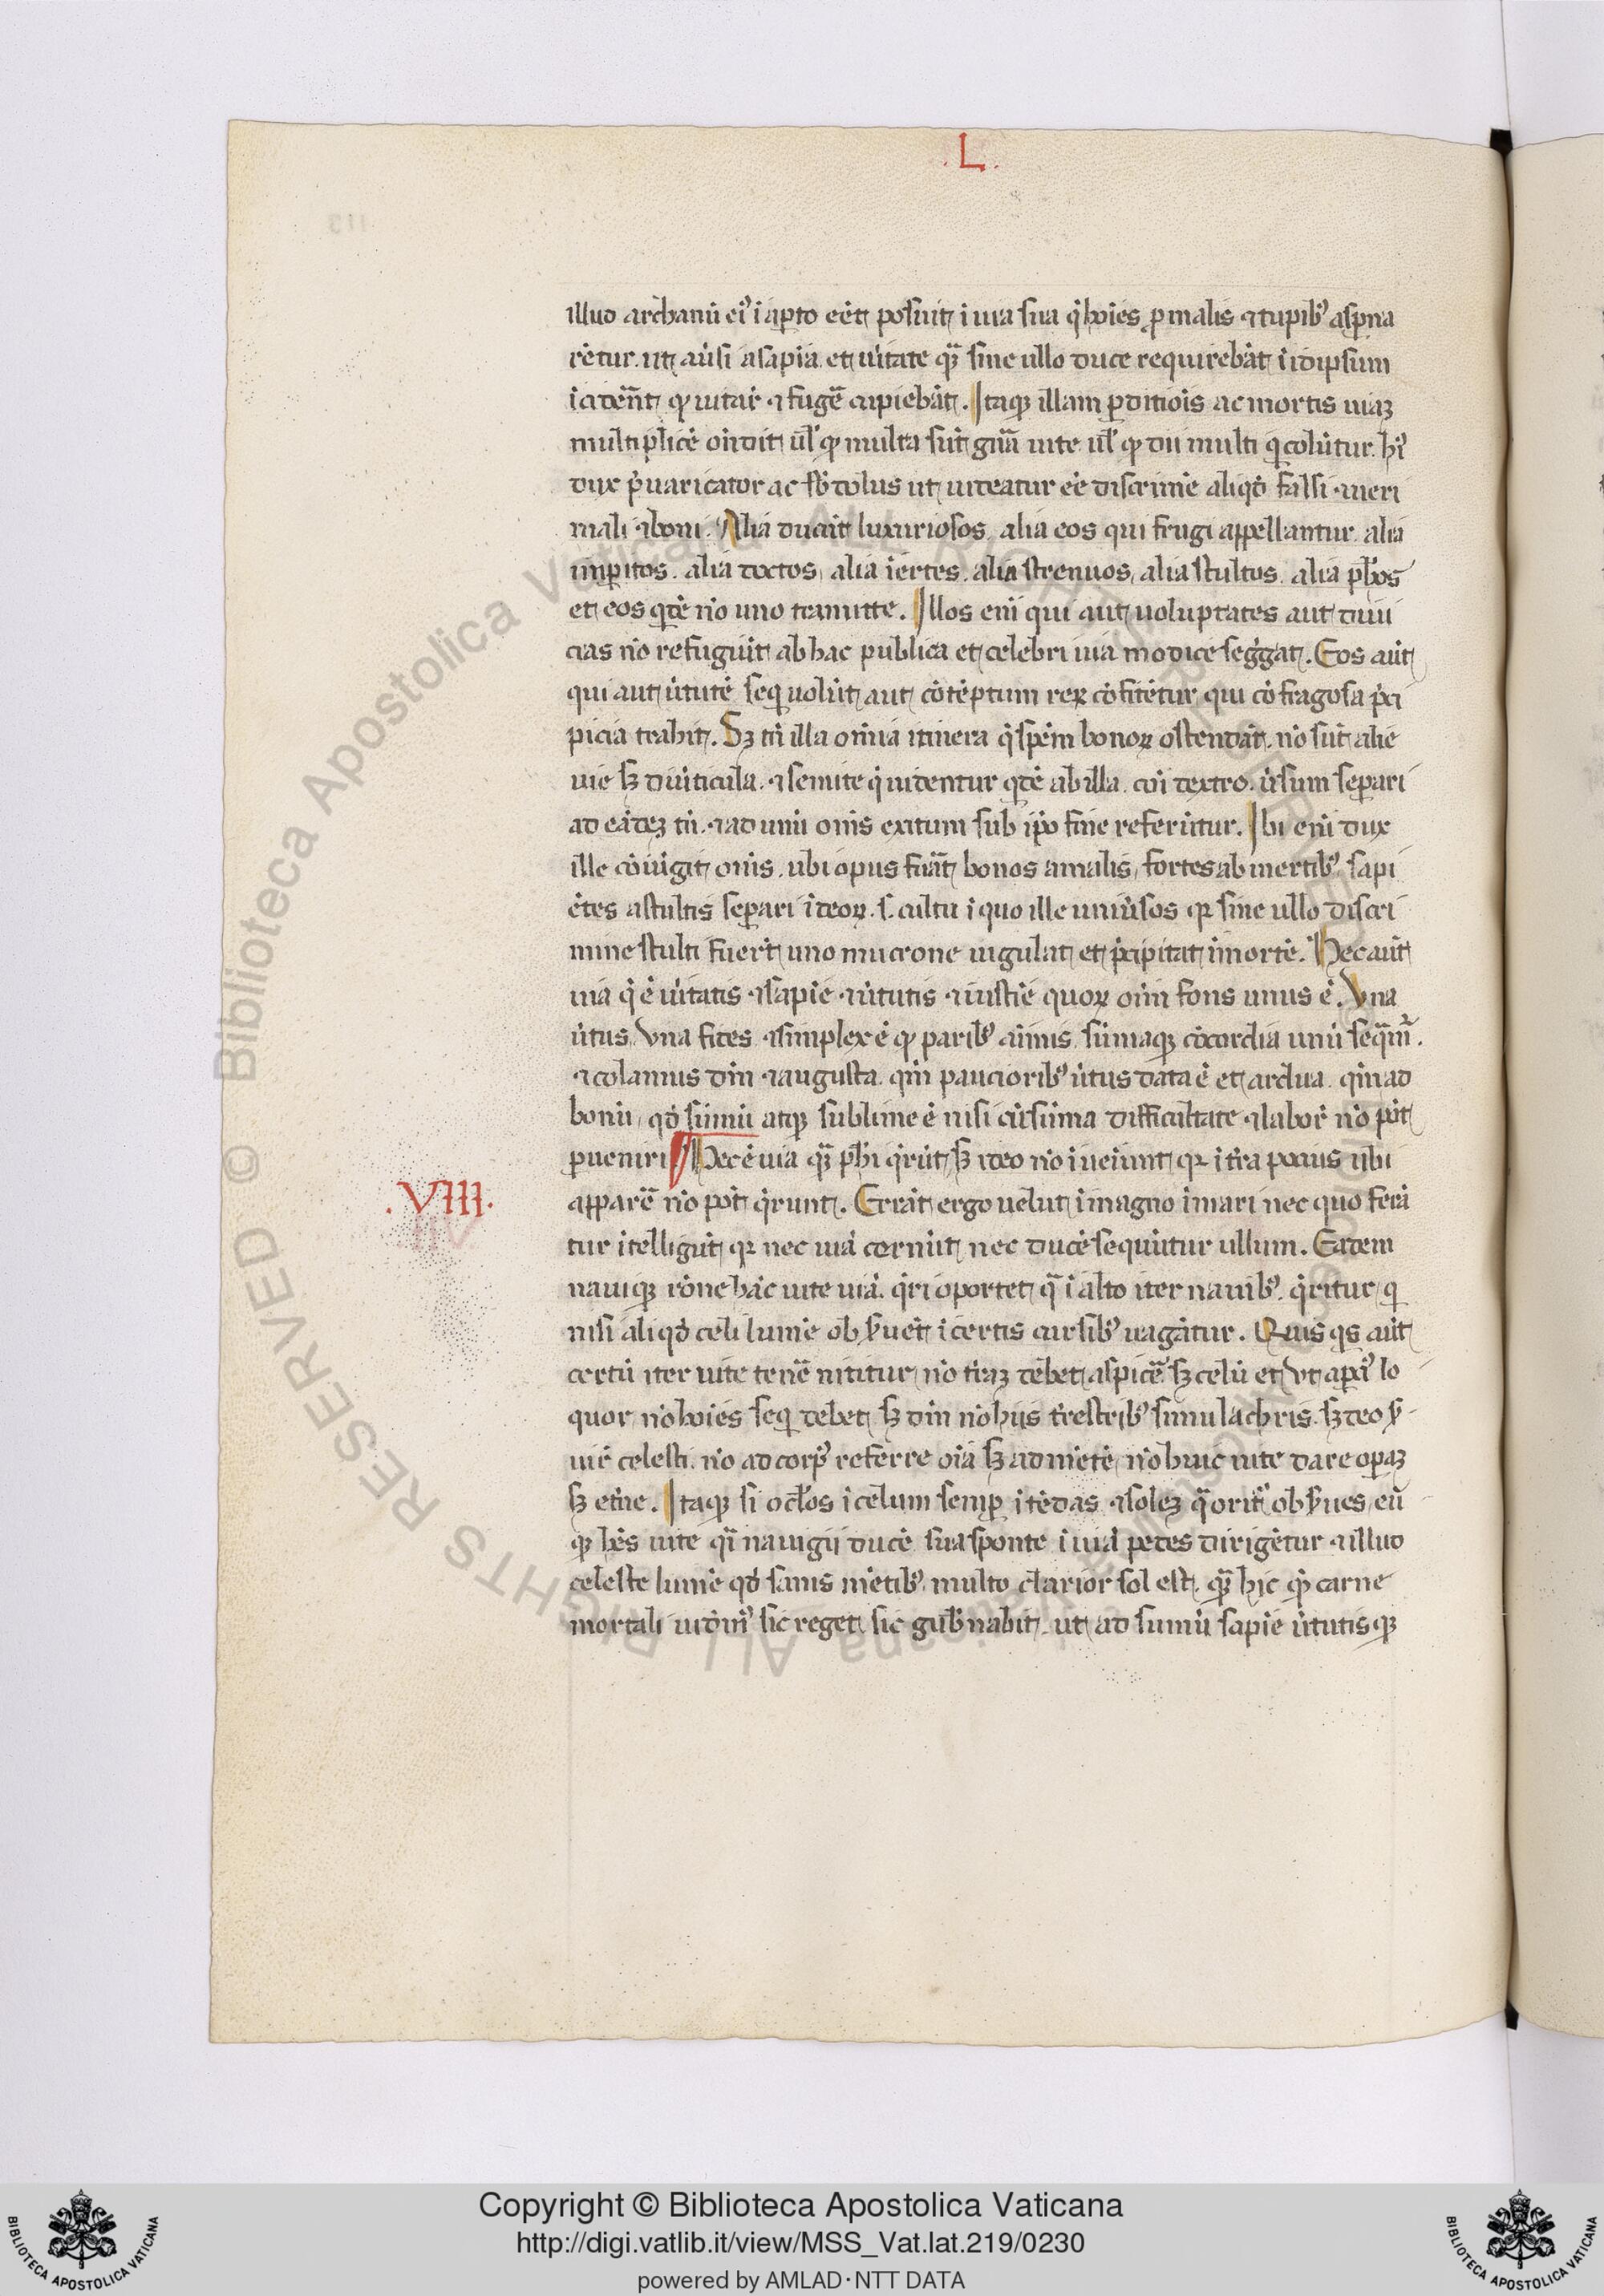 .L.
illud archanū ei᷒ ī aꝑto eēt posuit ī uia sua q̇ hoīes ꝓ malis ⁊ turpib᷒ aspna
rētur. ut aūsi a sapīa et u̇itate qᷓ sine ullo duce requirebāt ī idipsum
īcidēnt qꝫ uitar̄ ⁊ fugē cupiebāt. Itaqꝫ illam ꝑditiōis ac mortis uiaꝫ
multiplicē oñdit ul̄ qꝫ multa sūt gn̄a uite ul̄ qꝫ dii multi q colūtur. hi᷒
dux p̄uaricator ac sb̄dolus ut uideatur eē discrimē aliqd̄ falsi ⁊ ueri
mali ⁊ boni. Alia ducit luxuriosos, alia eos qui frugi appellantur. alia
imꝑitos. alia doctos, alia īertes. alia strenuos, alia stultos. alia ph̄os
et eos qdē nō uno tramitte. Illos enī qui aut uoluptates aut diui
cias nō refugiūt ab hac publica et celebri uia modice seg̊gat. Eos aūt
qui aut u̇tutē seqͥ uolūt aut cōtēptum reꝝ cōfitētur qui cōfragosa p̄ci
picia trahit. Sꝫ tn̄ illa omīa itinera q̇ spēm bonoꝝ ostendāt. nō sūt alie
uie sꝫ diu̇ticula. ⁊ semite q̇ uidentur qdē ab illa. coī dextro. u̇sum seꝑari
ad eādeꝫ tn̄. ⁊ ad unū om̄s exitum sub ip̄o fine referūtur. Ibi enī dux
ille cōiūgit om̄s. ubi opus fuāt bonos a malis, fortes ab inertib᷒ sapi
ētes a stultis seꝑari ī deoꝝ. s. cultu ī quo ille uniu̇sos qꝛ sine ullo discri
mine stulti fuert̄ uno mucrone iugulat et p̄cipitat ī mortē. Hec aūt
uia q̇ ē u̇itatis ⁊ sapīe ⁊ u̇tutis ⁊ iustīe quoꝝ oīm fons unus ē. Vna
u̇tus Vna fides ⁊ simplex ē qꝫ parib᷒ aīmis sūmaqꝫ cōcordia unū seqͣmr̄.
⁊ colamus dm̄ ⁊ angusta. qm̄ pauciorib᷒ u̇tus data ē et ardua. qm̄ ad
bonū, qd̄ sūmū atqꝫ sublime ē nisi cū sūma difficultate ⁊ labor̄ nō pōt
ꝑueniri ¶ Hec ē uia qᷓ ph̄i q̇rūt, sꝫ ideo nō īueiūnt qꝛ ī tr̄a pocius ubi
.VIII.
apparē nō pōt q̇runt. Errāt ergo uelut ī magno ī mari nec quo ferā
tur ītelligūt qꝛ nec uiā cernūt nec ducē sequūtur ullum. Eadem
nauiqꝫ rōne hāc uite uiā. q̇ri oportet qͣ ī alto iter nauib᷒. q̇ritur q
nisi aliqd̄ celi lumē obs̄uēt īcertis cursib᷒ uagātur. Quisqs aūt
certū iter uite tenē nititur, nō tr̄aꝫ debet aspicē sꝫ celū et Vt aꝑti᷒ lo
quor nō hoīes seqͥ debet sꝫ dm̄ nō hiis tr̄estrib᷒ simulachris. sꝫ deo s̄
uir̄ celesti. nō ad corp᷒ referre oīa sꝫ ad mētē, nō huic uite dare oꝑaꝫ
sꝫ etr̄ne. Itaqꝫ si ocl̄os ī celum semꝑ ītēdas ⁊ soleꝫ qͣ orit᷒ obs̄ues, eū
qꝫ hēs uite qͣi nauigij ducē sua sponte ī uiā pedes dirigētur ⁊ illud
celeste lumē qd̄ sanis mētib᷒ multo clarior sol est. qᷓ hic qꝫ carne
mortali uidm᷒ sic reget sic gub̄nabit. ut ad sumū sapīe u̇tutisqꝫ
Copyright © Biblioteca Apostolica Vaticana
http://digi.vatlib.it/view/MSS_Vat.lat.219/0230
powered by AMLAD·NTT DATA